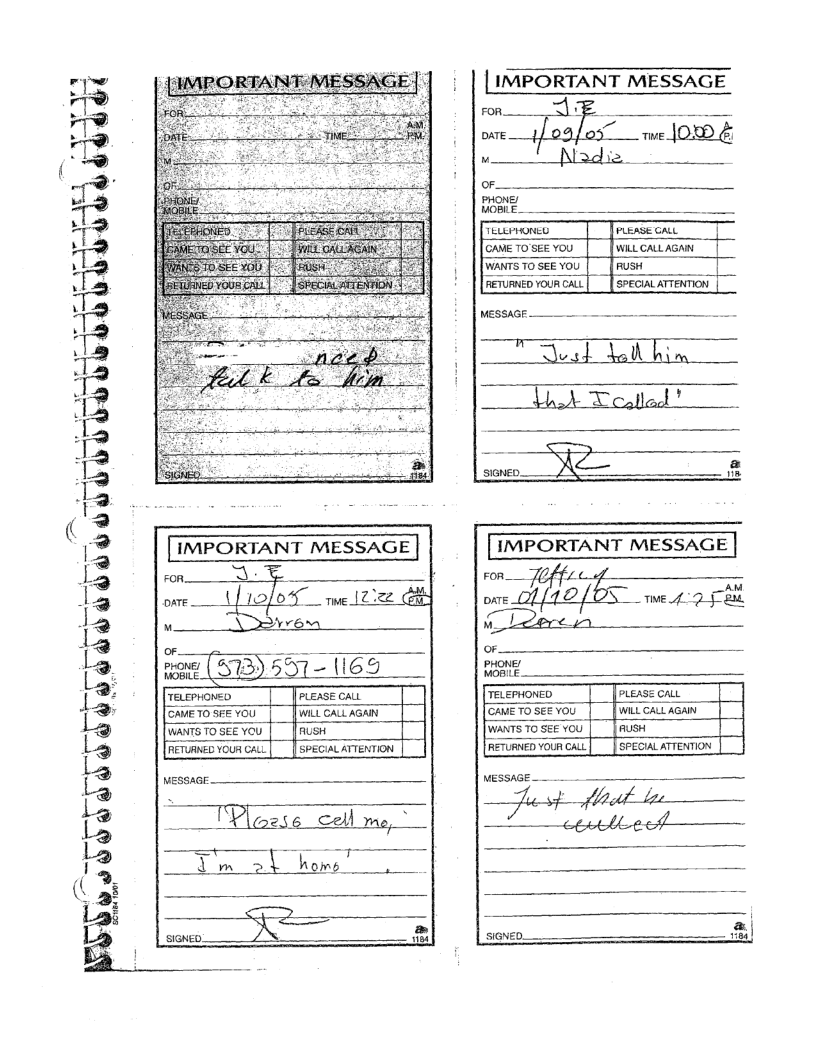 IMPORTANT MESSAGE
FOR
DATE TIME A.M. P.M.
M
OF
PHONE/
MOBILE
TELEPHONED PLEASE CALL
CAME TO SEE YOU WILL CALL AGAIN
WANTS TO SEE YOU RUSH
RETURNED YOUR CALL SPECIAL ATTENTION
MESSAGE
need
talk to him
SIGNED
1184
IMPORTANT MESSAGE
FOR J.E
DATE 1/09/05 TIME 10:00 A P.
M Nadia
OF
PHONE/
MOBILE
TELEPHONED PLEASE CALL
CAME TO SEE YOU WILL CALL AGAIN
WANTS TO SEE YOU RUSH
RETURNED YOUR CALL SPECIAL ATTENTION
MESSAGE
" Just tell him
that I called"
SIGNED
118
IMPORTANT MESSAGE
FOR J.E
DATE 1/10/05 TIME 12:22 A.M. P.M.
M Darren
OF
PHONE/
MOBILE (973) 597-1169
TELEPHONED PLEASE CALL
CAME TO SEE YOU WILL CALL AGAIN
WANTS TO SEE YOU RUSH
RETURNED YOUR CALL SPECIAL ATTENTION
MESSAGE
"Please call me,
I'm at home"
SIGNED
1184
IMPORTANT MESSAGE
FOR Jeffrey
DATE 01/10/05 TIME 1:25 A.M P.M.
M Daren
OF
PHONE/
MOBILE
TELEPHONED PLEASE CALL
CAME TO SEE YOU WILL CALL AGAIN
WANTS TO SEE YOU RUSH
RETURNED YOUR CALL SPECIAL ATTENTION
MESSAGE
Just that he
called
SIGNED
1184
SC1184 10/01